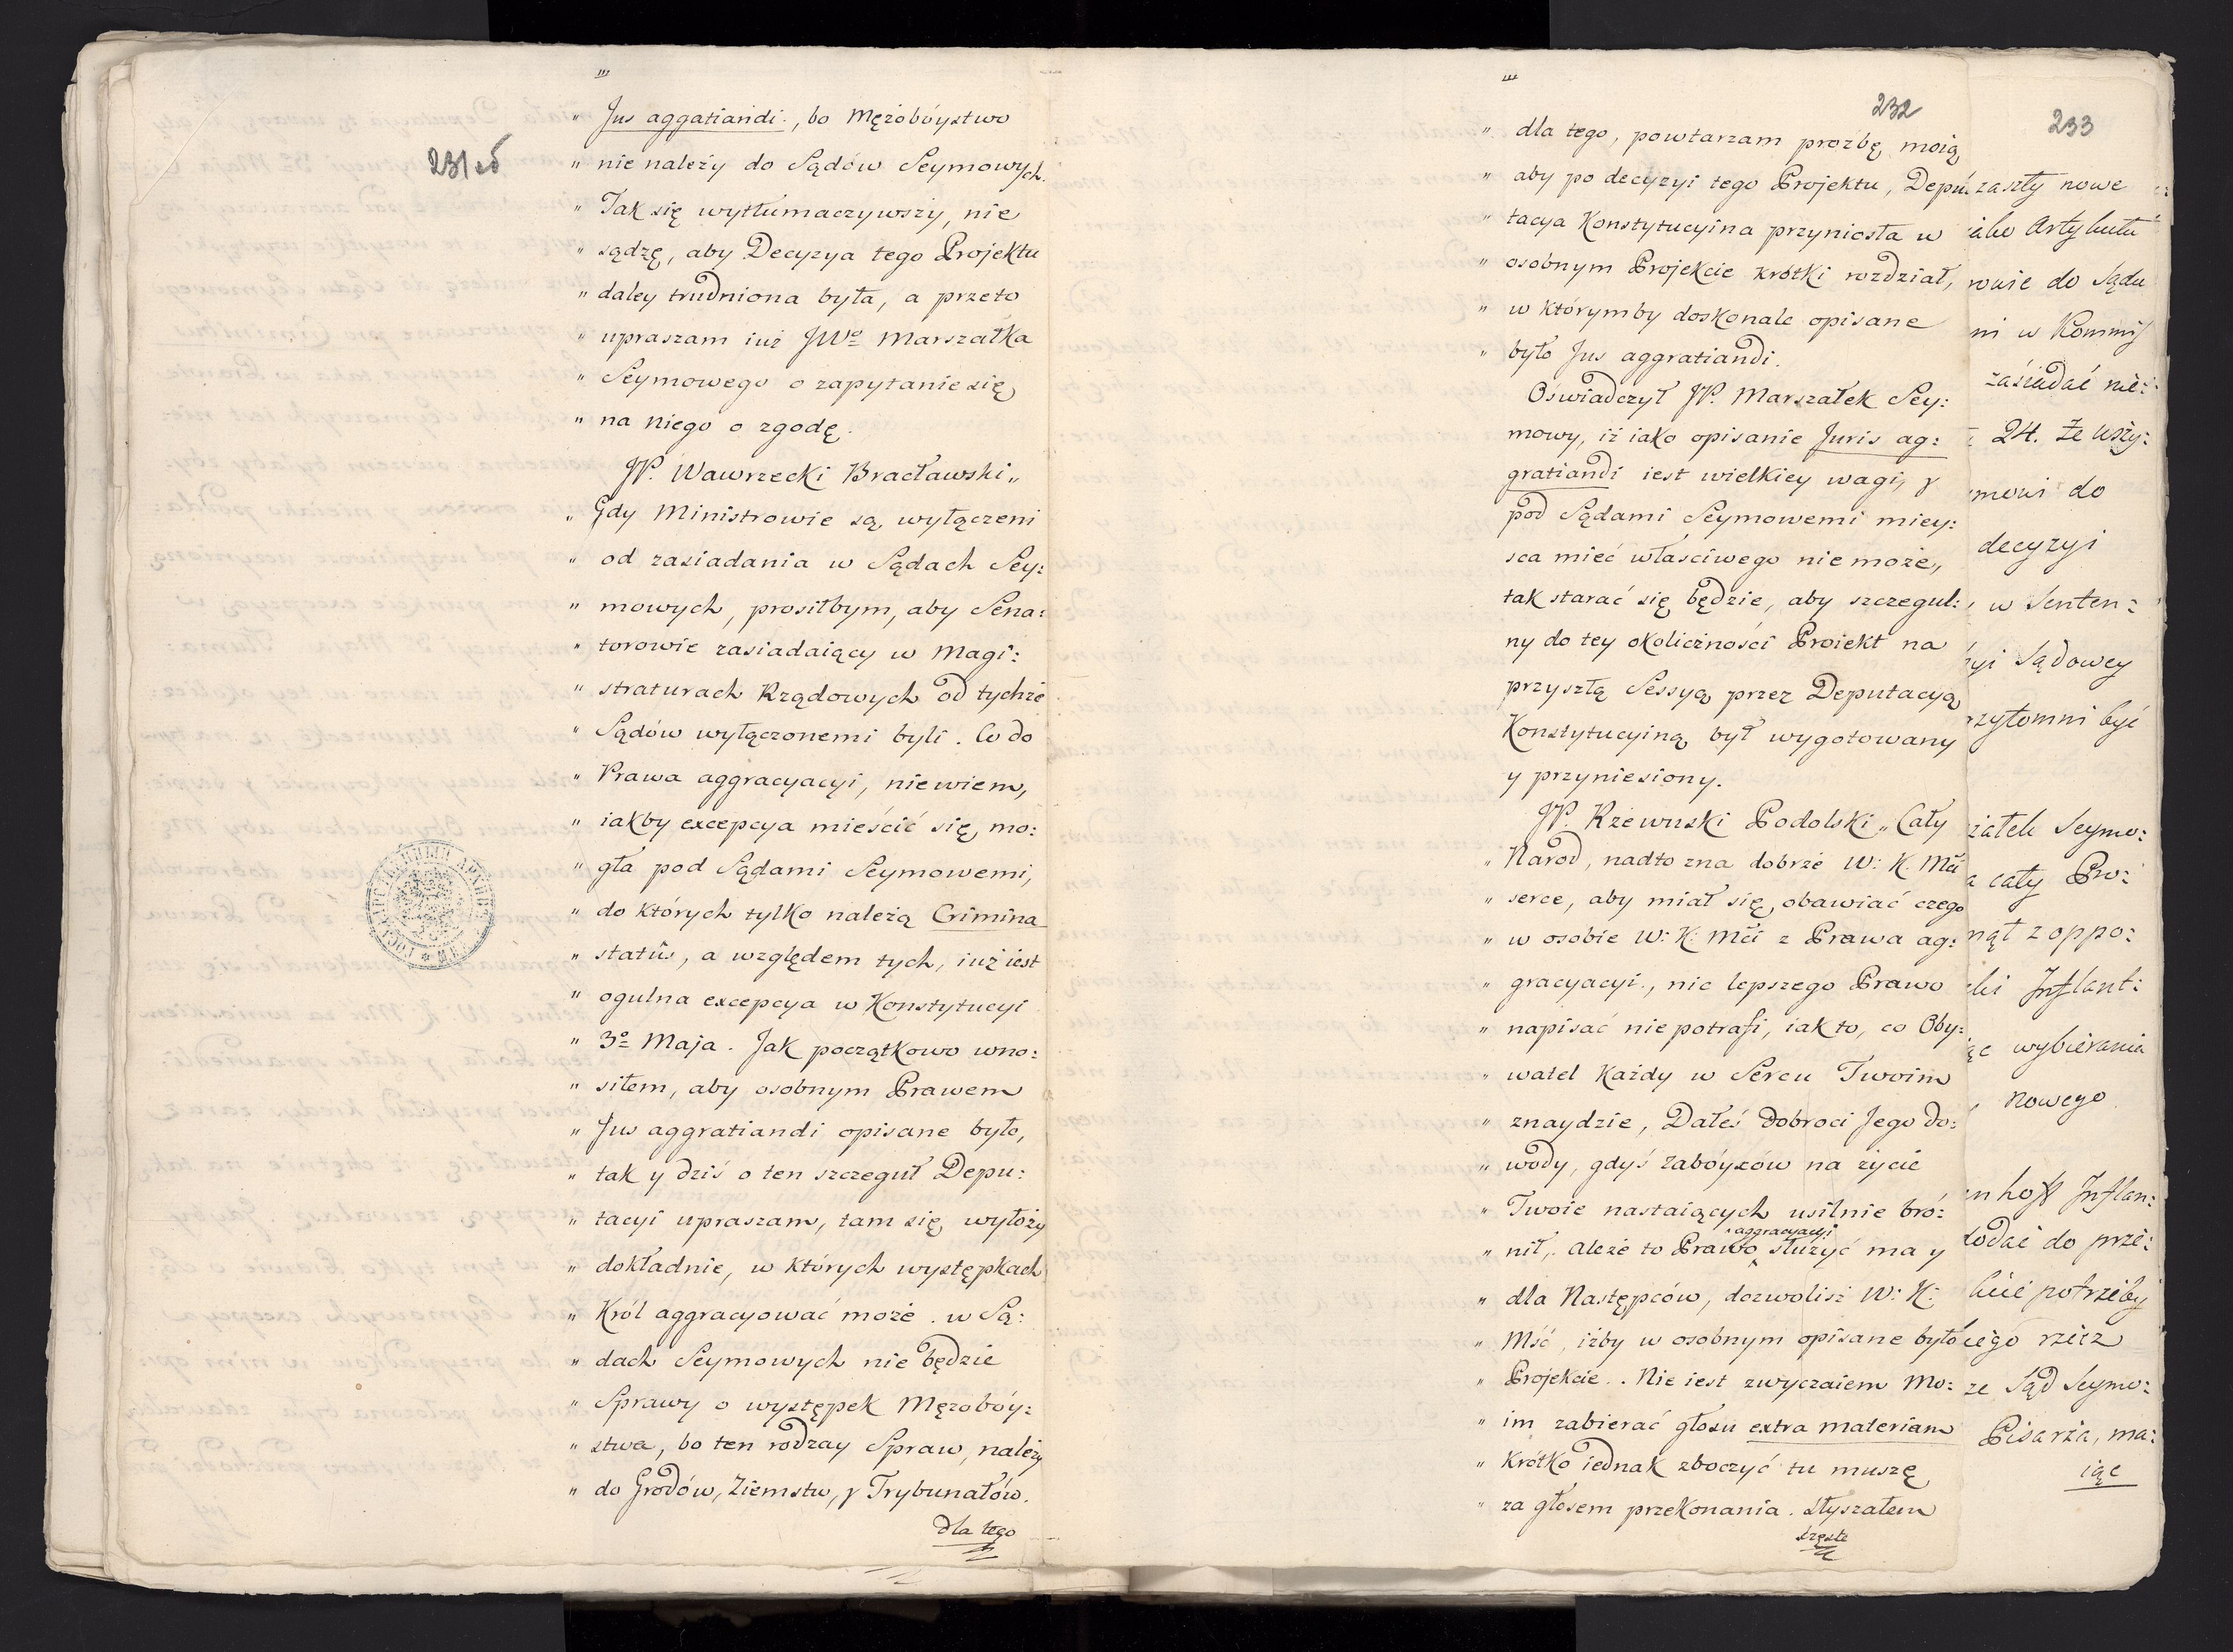 „ Jus aggatiandi., bo Mężobóystwo
231 об
„ nie należy do Sądów Seymowych.
„ Tak się wytłumaczywszy, nie
„ sądzę, aby Decyzya tego Projektu
„ daley trudniona była, a przeto
„ upraszam iuż JWo Marszałka
„ Seymowego o zapytanie się
„ na niego o zgodę.
JP. Wawrzecki Bracławski „
„ Gdy Ministrowie są wyłączeni
„ od zasiadania w Sądach Sey:
„ mowych, prosiłbym, aby Sena:
„ torowie zasiadaiący w Magi:
„ straturach Rządowych od tychże
„ Sądów wyłączonemi byli. Co do
„ Prawa aggracyacyi, nie wiem,
„ iakby excepcya mieścić się mo:
„ gła pod Sądami Seymowemi,
„ do których tylko należą Crimina
„ statûs, a względem tych, iuż iest
„ ogulna excepcya w Konstytucyi
„ 3o Maja. Jak początkowo wno:
„ siłem, aby osobnym Prawem
„ Jus aggratiandi opisane było,
„ tak y dziś o ten szczeguł Depu:
„ tacyi upraszam, tam się wyłoży
„ dokładnie, w których występkach
„ Król aggracyować może. w Są:
„ dach Seymowych nie będzie
„ Sprawy o występek Mężobóy:
„ stwa, bo ten rodzay Spraw, należy
„ do Grodów, Ziemstw, y Trybunałów.
dla tego
232
„ dla tego, powtarzam prozbę moią
„ aby po decyzyi tego Projektu, Depu:
„ tacya Konstytucyina przyniosła w
„ osobnym Projekcie krótki rozdział,
„ w którymby doskonale opisane
„ było Jus aggratiandi.
Oświadczył JP. Marszałek Sey:
mowy, iż iako opisanie Juris ag:
gratiandi iest wielkiey wagi, y
pod Sądami Seymowemi miey:
sca mieć właściwego nie może,
tak starać się będzie, aby szczegul:
ny do tey okoliczności Proiekt na
przyszłą Sessyą przez Deputacyą
Konstytucyiną był wygotowany
y przyniesiony.
JP. Rzewuski Podolski „ Cały
„ Narod, nadto zna dobrze W: K. Mći
„ serce, aby miał się obawiać czego
„ w osobie W: K: Mći z Prawa ag:
„ gracyacyi., nic lepszego Prawo
„ napisać nie potrafi, iak to, co Oby:
„ watel Każdy w Sercu Twoim
„ znaydzie, Dałeś dobroci Jego do:
„ wody, gdyś zabóyców na życie
„ Twoie nastaiących usilnie bró:
„ nił, Ależe to Prawo aggracyacyi służyć ma y
„ dla Następców, dozwolisz W: K:
„ Mść, iżby w osobnym opisane było
„ Projekcie. Nie iest zwyczaiem Mo:
„ im zabierać głosu extra materiam
„ Krótko iednak zboczyć tu muszę
„ za głosem przekonania. Słyszałem
częste
233
zaszły nowe
albo Artykułu
do Sądu
w Kommis
zasiadać nie:
24. Że wszy:
do
decyzyi
w Senten:
Sądowey
być
Seymo:
cały Pro:
z oppo:
Inflant:
wybierania
nowego
Inflan:
do prze:
potrzeby
rzecz
Sąd Seymo:
Pisarza, ma:
iąc